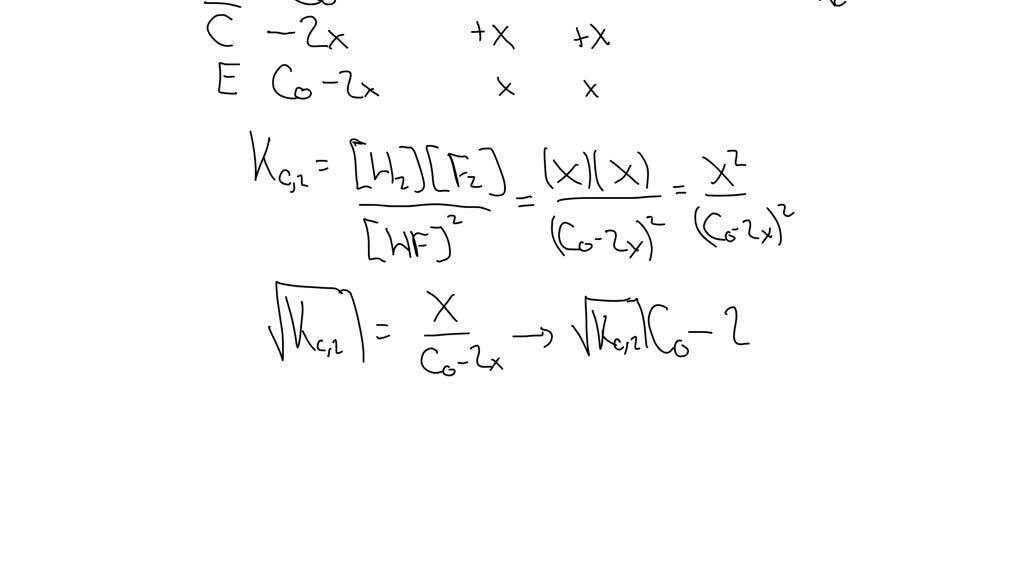 C -2x +x +x
E C₀-2x x x
K_c,2 = [H₂][F₂] / [HF]² = (x)(x) / (C₀-2x)² = x² / (C₀-2x)²
√K_c,2 = x / C₀-2x → √K_c,2 C₀ - 2